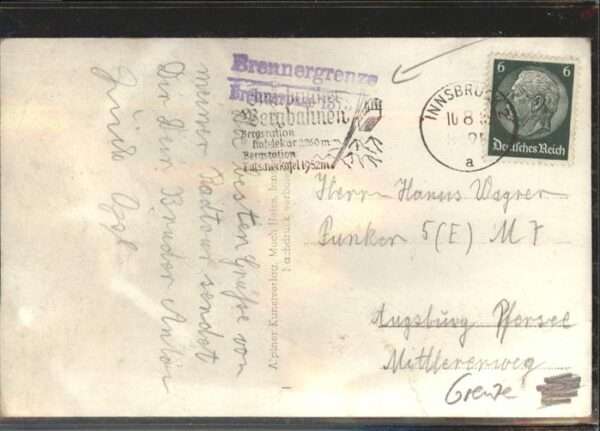 Brennergrenze
Bergbahnen
Bergstation
Hafelekar 2260 m
Bergstation
Patscherkofel 1952 m
INNSBRUCK
10 8
a
6 6
Deutsches Reich
Die besten Grüße von
meiner Radtour sendet
Dir Dein Bruder Anton
Grüße
Alpiner Kunstverlag, Much Heiss, Inn
Nachdruck verboten
Herrn Hanns Wagner
Funker 5(E) M 7
Augsburg Pfersee
Mittlererweg
Grenze